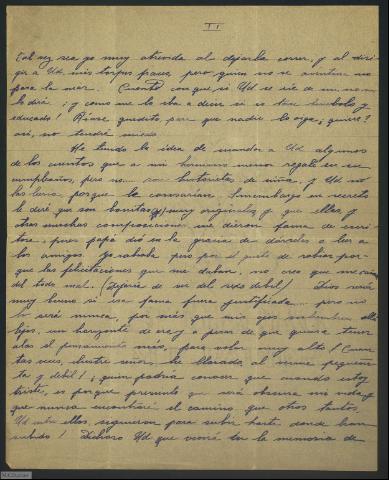 II
Tal vez sea yo muy atrevida al dejarla correr, y al diri-
gir a Ud. mis torpes frases, pero quien no se aventura no
pasa la mar. Cuento con que si Ud se rie de mi no me
lo dirá: ¡y como me lo iba a decir si es tan bueno y
educado! Ríase quedito para que nadie lo oiga, ¿quiere?
así, no tendré miedo.
He tenido la idea de mandar a Ud algunos
de los cuentos que a mi hermano menor regalé en su
cumpleaños, pero no.... son historietas de niña, y Ud no
las leería porque le cansarían. Sin embargo en secreto
le diré que son bonitas y muy originales y que ellas y
otras muchas composiciones me dieron fama de escri-
tora, pues papá dió en la gracia de darlas a leer a
los amigos. Yo rabiaba pero por el gusto de rabiar por-
que las felicitaciones que me daban, no creo que me
del todo mal. (Dejaría de ser del sexo debil) Dios sería
muy bueno si esa fama fuera justificada.... pero no
lo será nunca, por más que mis ojos allá
lejos, un horizonte de y a pesar de que quiera tener
alas el pensamiento mio, para volar muy alto! Cuan-
tas veces, ilustre señor, he llorado, al verme pequeñi-
ta y debil! ¡quien podría conocer que cuando estoy
triste, es porque presiento que será obscura mi vida y
que nunca encontraré el camino que otros tantos,
Ud entre ellos, siguieron para subir hasta donde han
subido! Dichoso Ud que vivirá en la memoria de